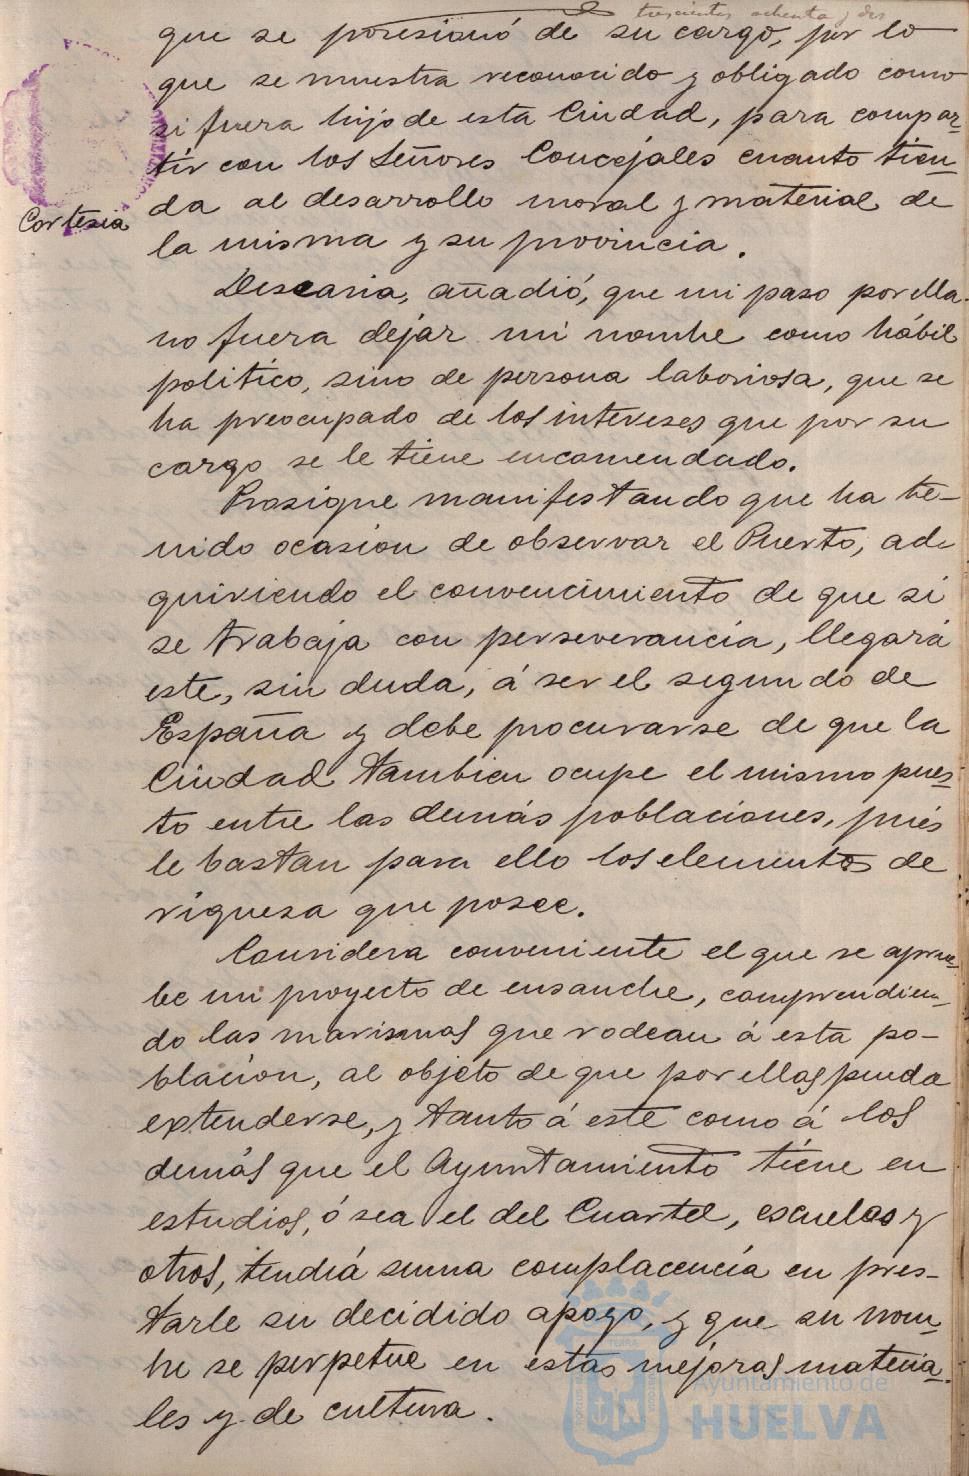 trescientos ochenta y dos
que se posesionó de su cargo, por lo
que se muestra reconocido y obligado como
si fuera hijo de esta Ciudad, para compar-
tir con los Señores Concejales cuanto tien-
Cortesia
da al desarrollo moral y material de
la misma y su provincia.
Desearia, añadió, que mi paso por ella
no fuera dejar mi nombre como hábil
politico, sino de persona laboriosa, que se
ha preocupado de los intereses que por su
cargo se le tiene encomendado.
Prosigue manifestando que ha te-
nido ocasion de observar el Puerto, ad-
quiriendo el convencimiento de que si
se trabaja con perseverancia, llegará
este, sin duda, á ser el segundo de
España y debe procurarse de que la
Ciudad tambien ocupe el mismo pues-
to entre las demás poblaciones, pués
le bastan para ello los elementos de
riquesa que posee.
Considera conveniente el que se aprue-
be un proyecto de ensanche, comprendien-
do las marismas que rodean á esta po-
blación, al objeto de que por ellas pueda
extenderse, y tanto á este como á los
demás que el Ayuntamiento tiene en
estudios, ó sea el del Cuartel, escuelas y
otros, tendrá suma complacencia en pres-
tarle su decidido apoyo, y que su nom-
bre se perpetue en estas mejoras materia-
les y de cultura.
Ayuntamiento de
HUELVA